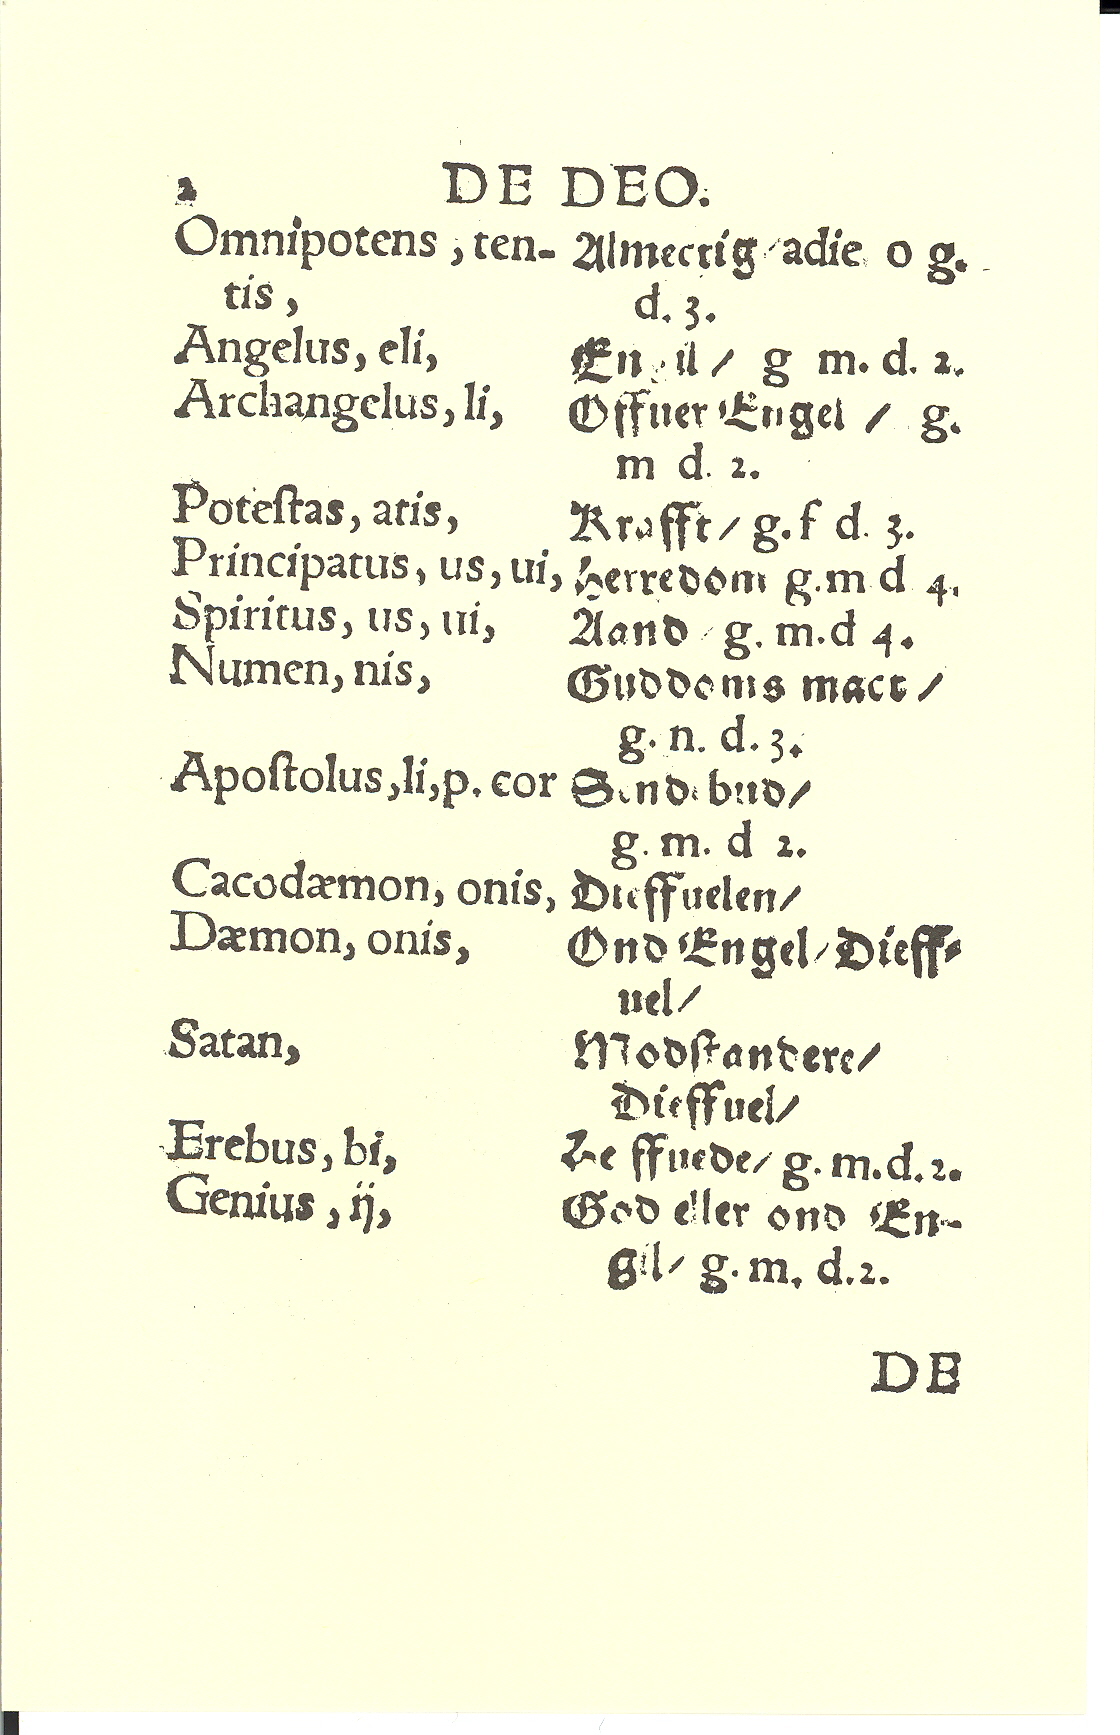 2 DE DEO.
Omnipotens, ten- Almectig/ adie. o g.
tis, d. 3.
Angelus, eli, Engil/ g m. d. 2.
Archangelus, li, Offuer Engel / g.
m d. 2.
Poteſtas, atis, Krafft/ g. f d. 3.
Principatus, us, ui, Herredom g. m d 4.
Spiritus, us, ui, Aand/ g. m. d 4.
Numen, nis, Guddoms mact/
g. n. d. 3.
Apoſtolus, li, p. cor Sendebud/
g. m. d 2.
Cacodæmon, onis, Dieffuelen/
Dæmon, onis, Ond Engel/ Dieff-
uel/
Satan, Modſtandere/
Dieffuel/
Erebus, bi, Heffuede/ g. m. d. 2.
Genius, ij, God eller ond En-
gil/ g. m. d. 2.
DE